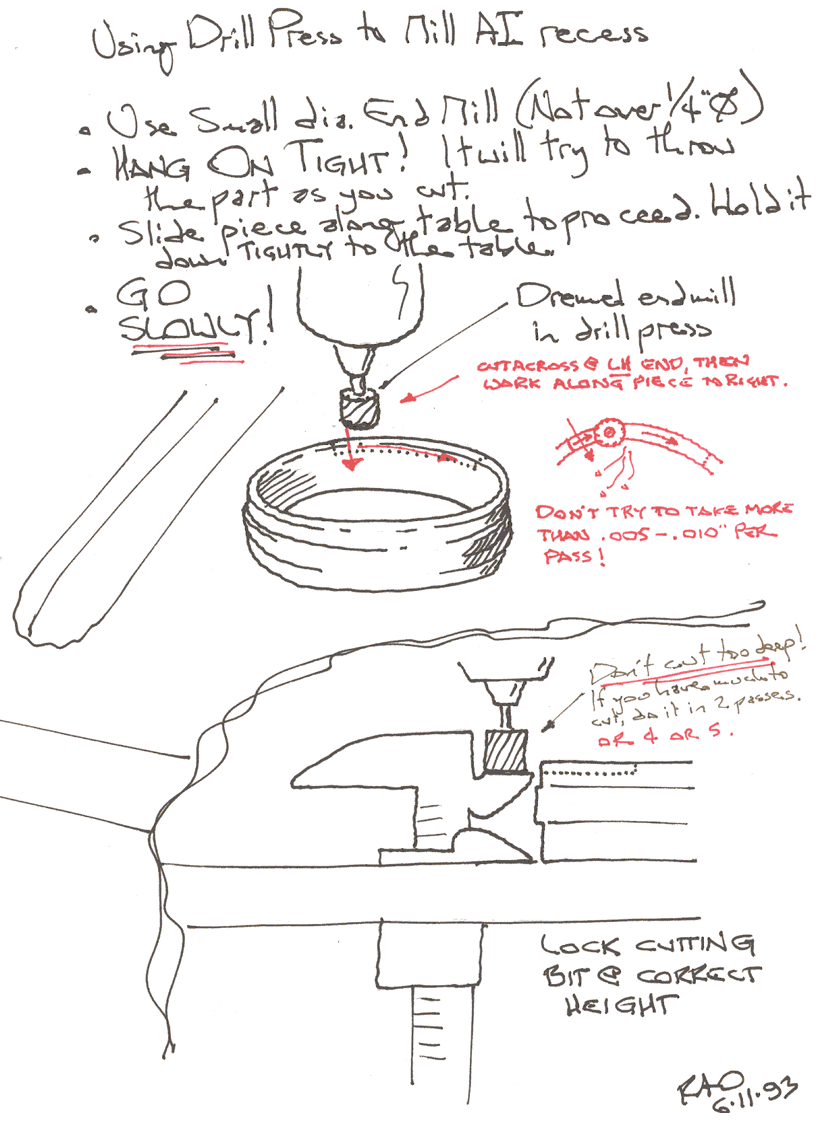 Using Drill Press to Mill AI recess
• Use Small dia. End Mill (Not over 1/4"Ø)
• HANG ON TIGHT! It will try to throw
the part as you cut.
• Slide piece along table to proceed. Hold it
down TIGHTLY to the table.
• GO
SLOWLY!
Dremel endmill
in drill press
CUT ACROSS @ LH END, THEN
WORK ALONG PIECE TO RIGHT.
DON'T TRY TO TAKE MORE
THAN .005-.010" PER
PASS!
Don't cut too deep!
If you have much to
cut, do it in 2 passes.
OR 4 OR 5.
LOCK CUTTING
BIT @ CORRECT
HEIGHT
RAO
6·11·93